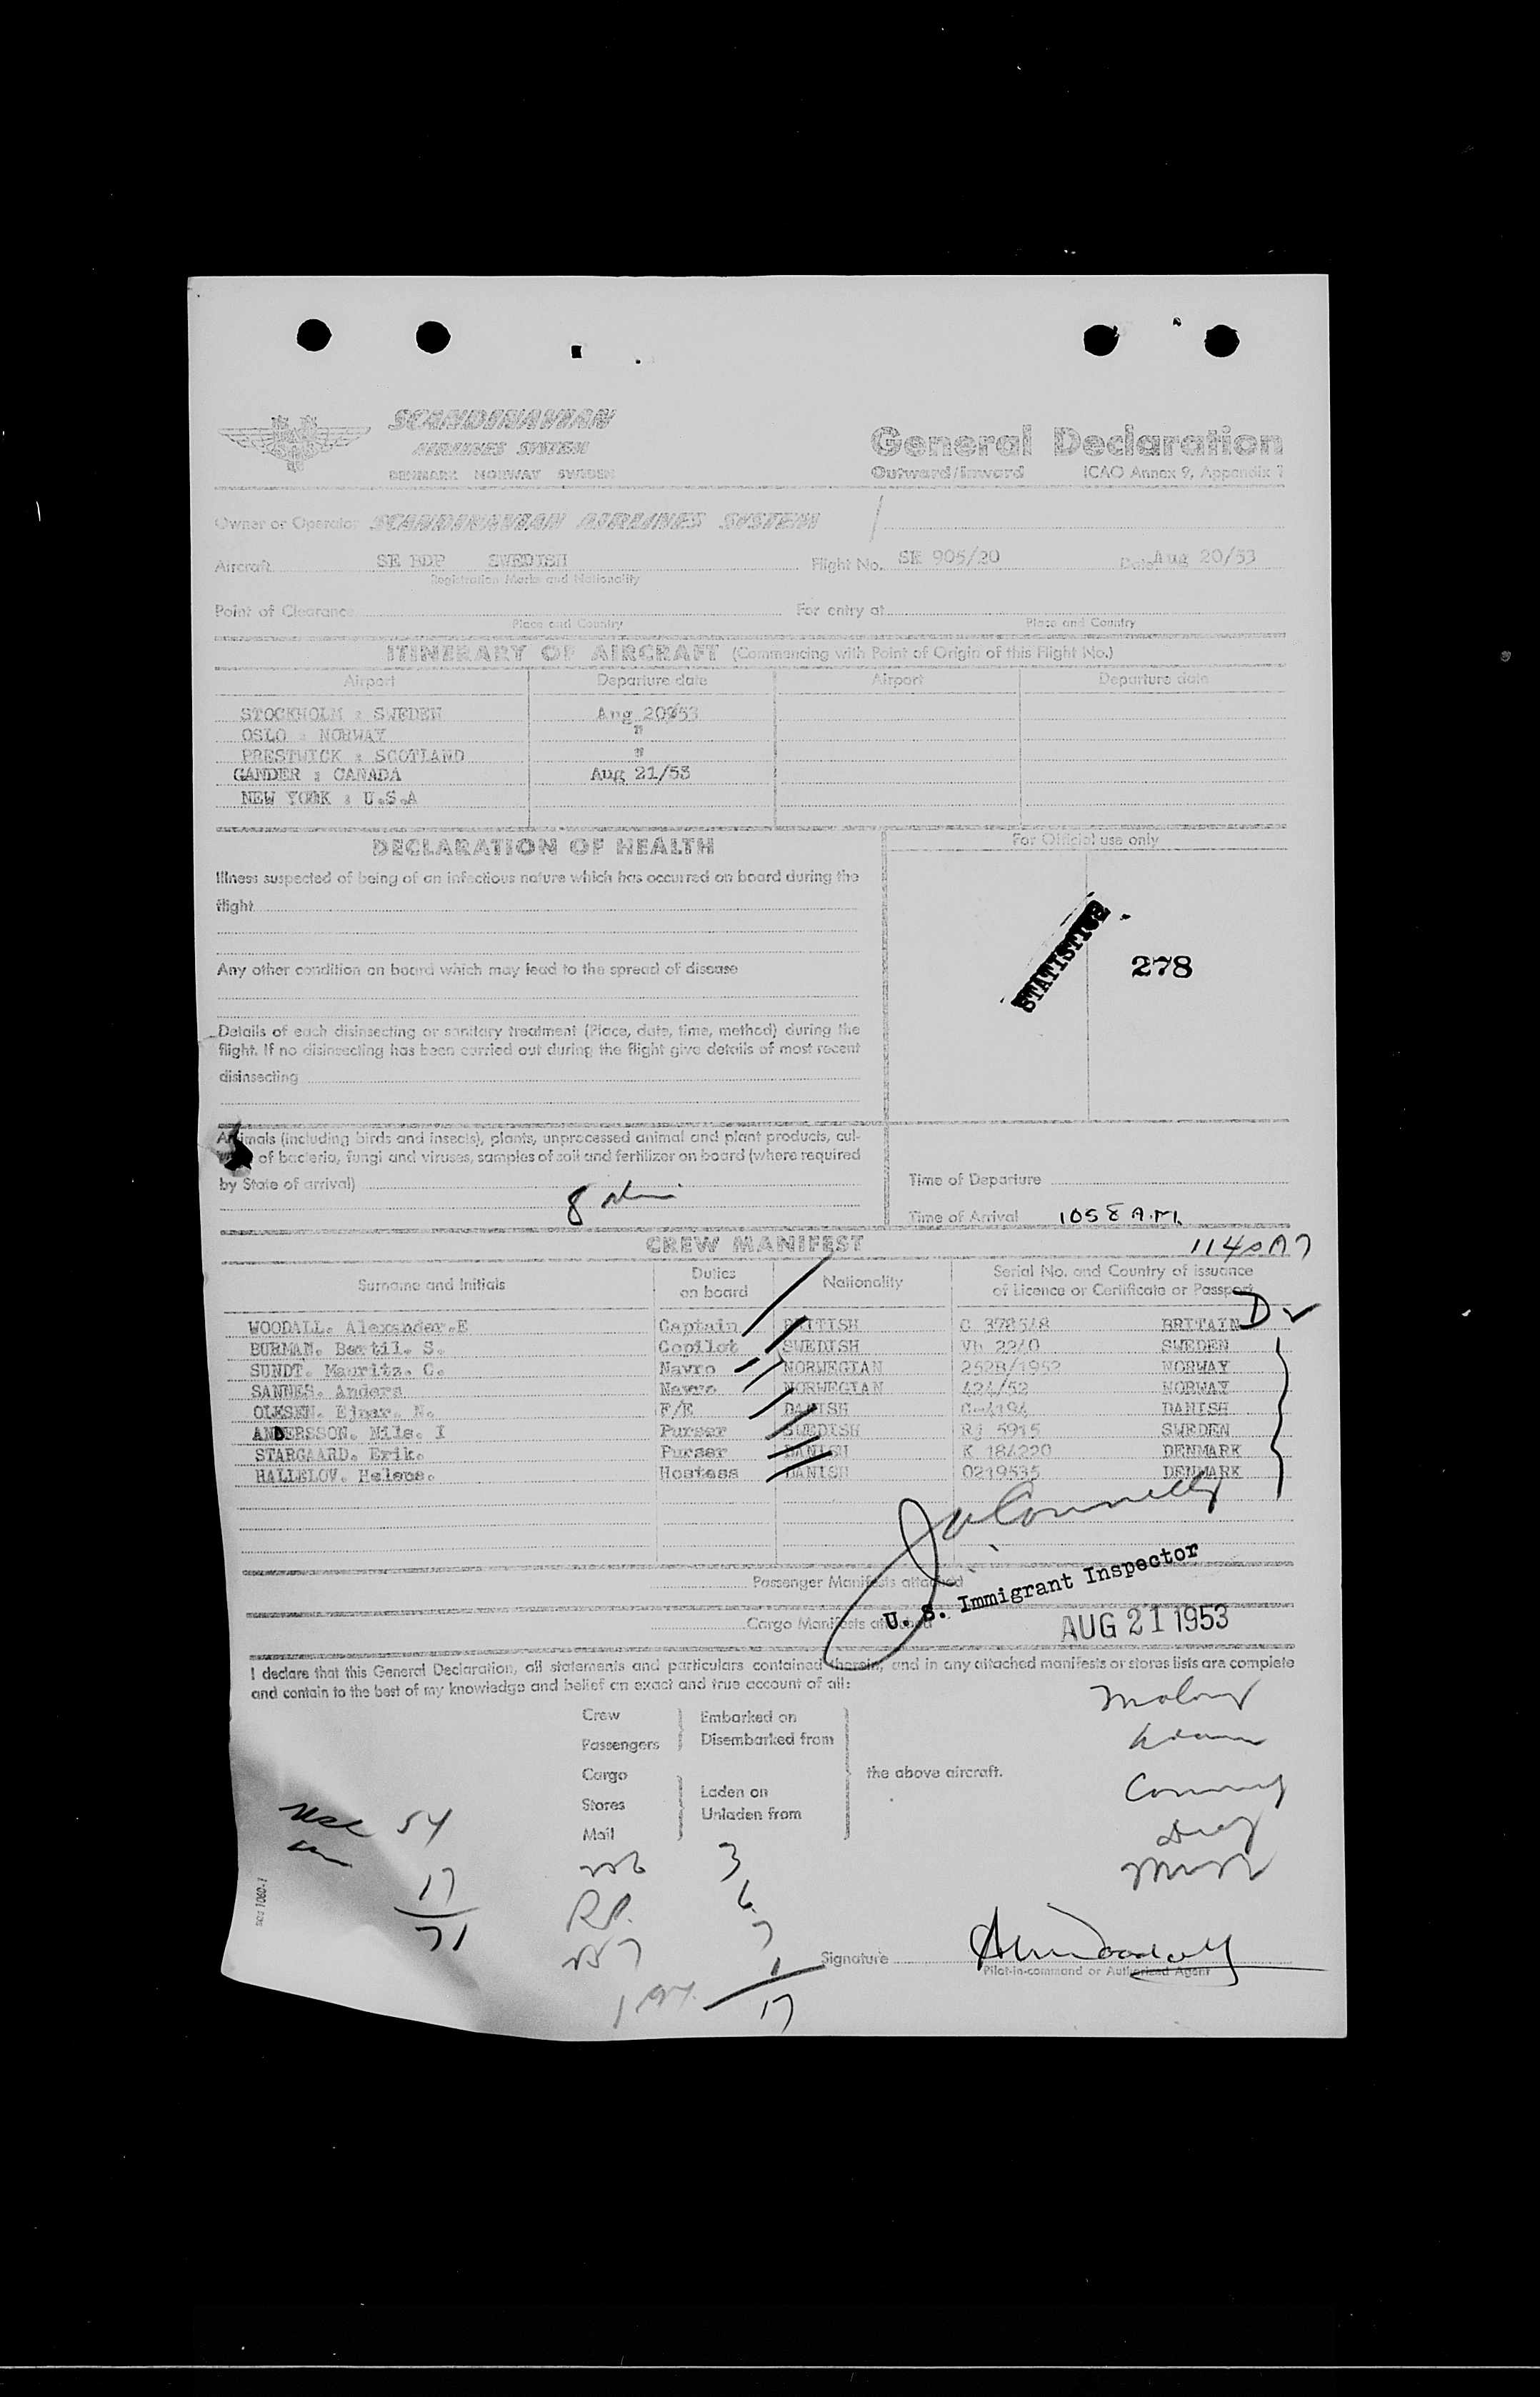 SCANDINAVIAN
AIRLINES SYSTEM
DENMARK NORWAY SWEDEN
General Declaration
Outward/Inward ICAO Annex 9, Appendix 1
Owner or Operator SCANDINAVIAN AIRLINES SYSTEM
Aircraft SE BDP SWEDISH Flight No. SK 905/20 Date Aug 20/53
Registration Marks and Nationality
Point of Clearance For entry at
Place and Country Place and Country
ITINERARY OF AIRCRAFT (Commencing with Point of Origin of this Flight No.)
Airport Departure date Airport Departure date
STOCKHOLM : SWEDEN Aug 20/53
OSLO : NORWAY "
PRESTWICK : SCOTLAND "
GANDER : CANADA Aug 21/53
NEW YORK : U.S.A
DECLARATION OF HEALTH
For Official use only
Illness suspected of being of an infectious nature which has occurred on board during the
flight
STATISTICS
278
Any other condition on board which may lead to the spread of disease
Details of each disinsecting or sanitary treatment (Place, date, time, method) during the
flight. If no disinsecting has been carried out during the flight give details of most recent
disinsecting
Animals (including birds and insects), plants, unprocessed animal and plant products, cul-
of bacteria, fungi and viruses, samples of soil and fertilizer on board (where required
by State of arrival)
8
Time of Departure
Time of Arrival 1058 A.M.
CREW MANIFEST
1140A
Surname and Initials Duties on board Nationality Serial No. and Country of issuance of Licence or Certificate or Passport
WOODALL. Alexander.E Captain BRITISH C 378548 BRITAIN D
BURMAN. Bertil. S. Copilot SWEDISH Vb 2240 SWEDEN
SUNDT. Mauritz. C. Navro NORWEGIAN 2528/1952 NORWAY
SANNES. Anders Navro NORWEGIAN 424/52 NORWAY
OLESEN. Ejnar. N. F/E DANISH C-4194 DANISH
ANDERSSON. Nils. I Purser SWEDISH Rj 5915 SWEDEN
STARGAARD. Erik. Purser DANISH K 184220 DENMARK
HALLELOV. Helene. Hostess DANISH 0219535 DENMARK
Passenger Manifests attached
U. S. Immigrant Inspector
Cargo Manifests attached
AUG 21 1953
I declare that this General Declaration, all statements and particulars contained therein, and in any attached manifests or stores lists are complete
and contain to the best of my knowledge and belief an exact and true account of all:
Crew
Passengers
Embarked on
Disembarked from
Cargo
Stores
Mail
Laden on
Unladen from
the above aircraft.
54
17
71
3
6
7
1
17
Signature
Pilot-in-command or Authorized Agent